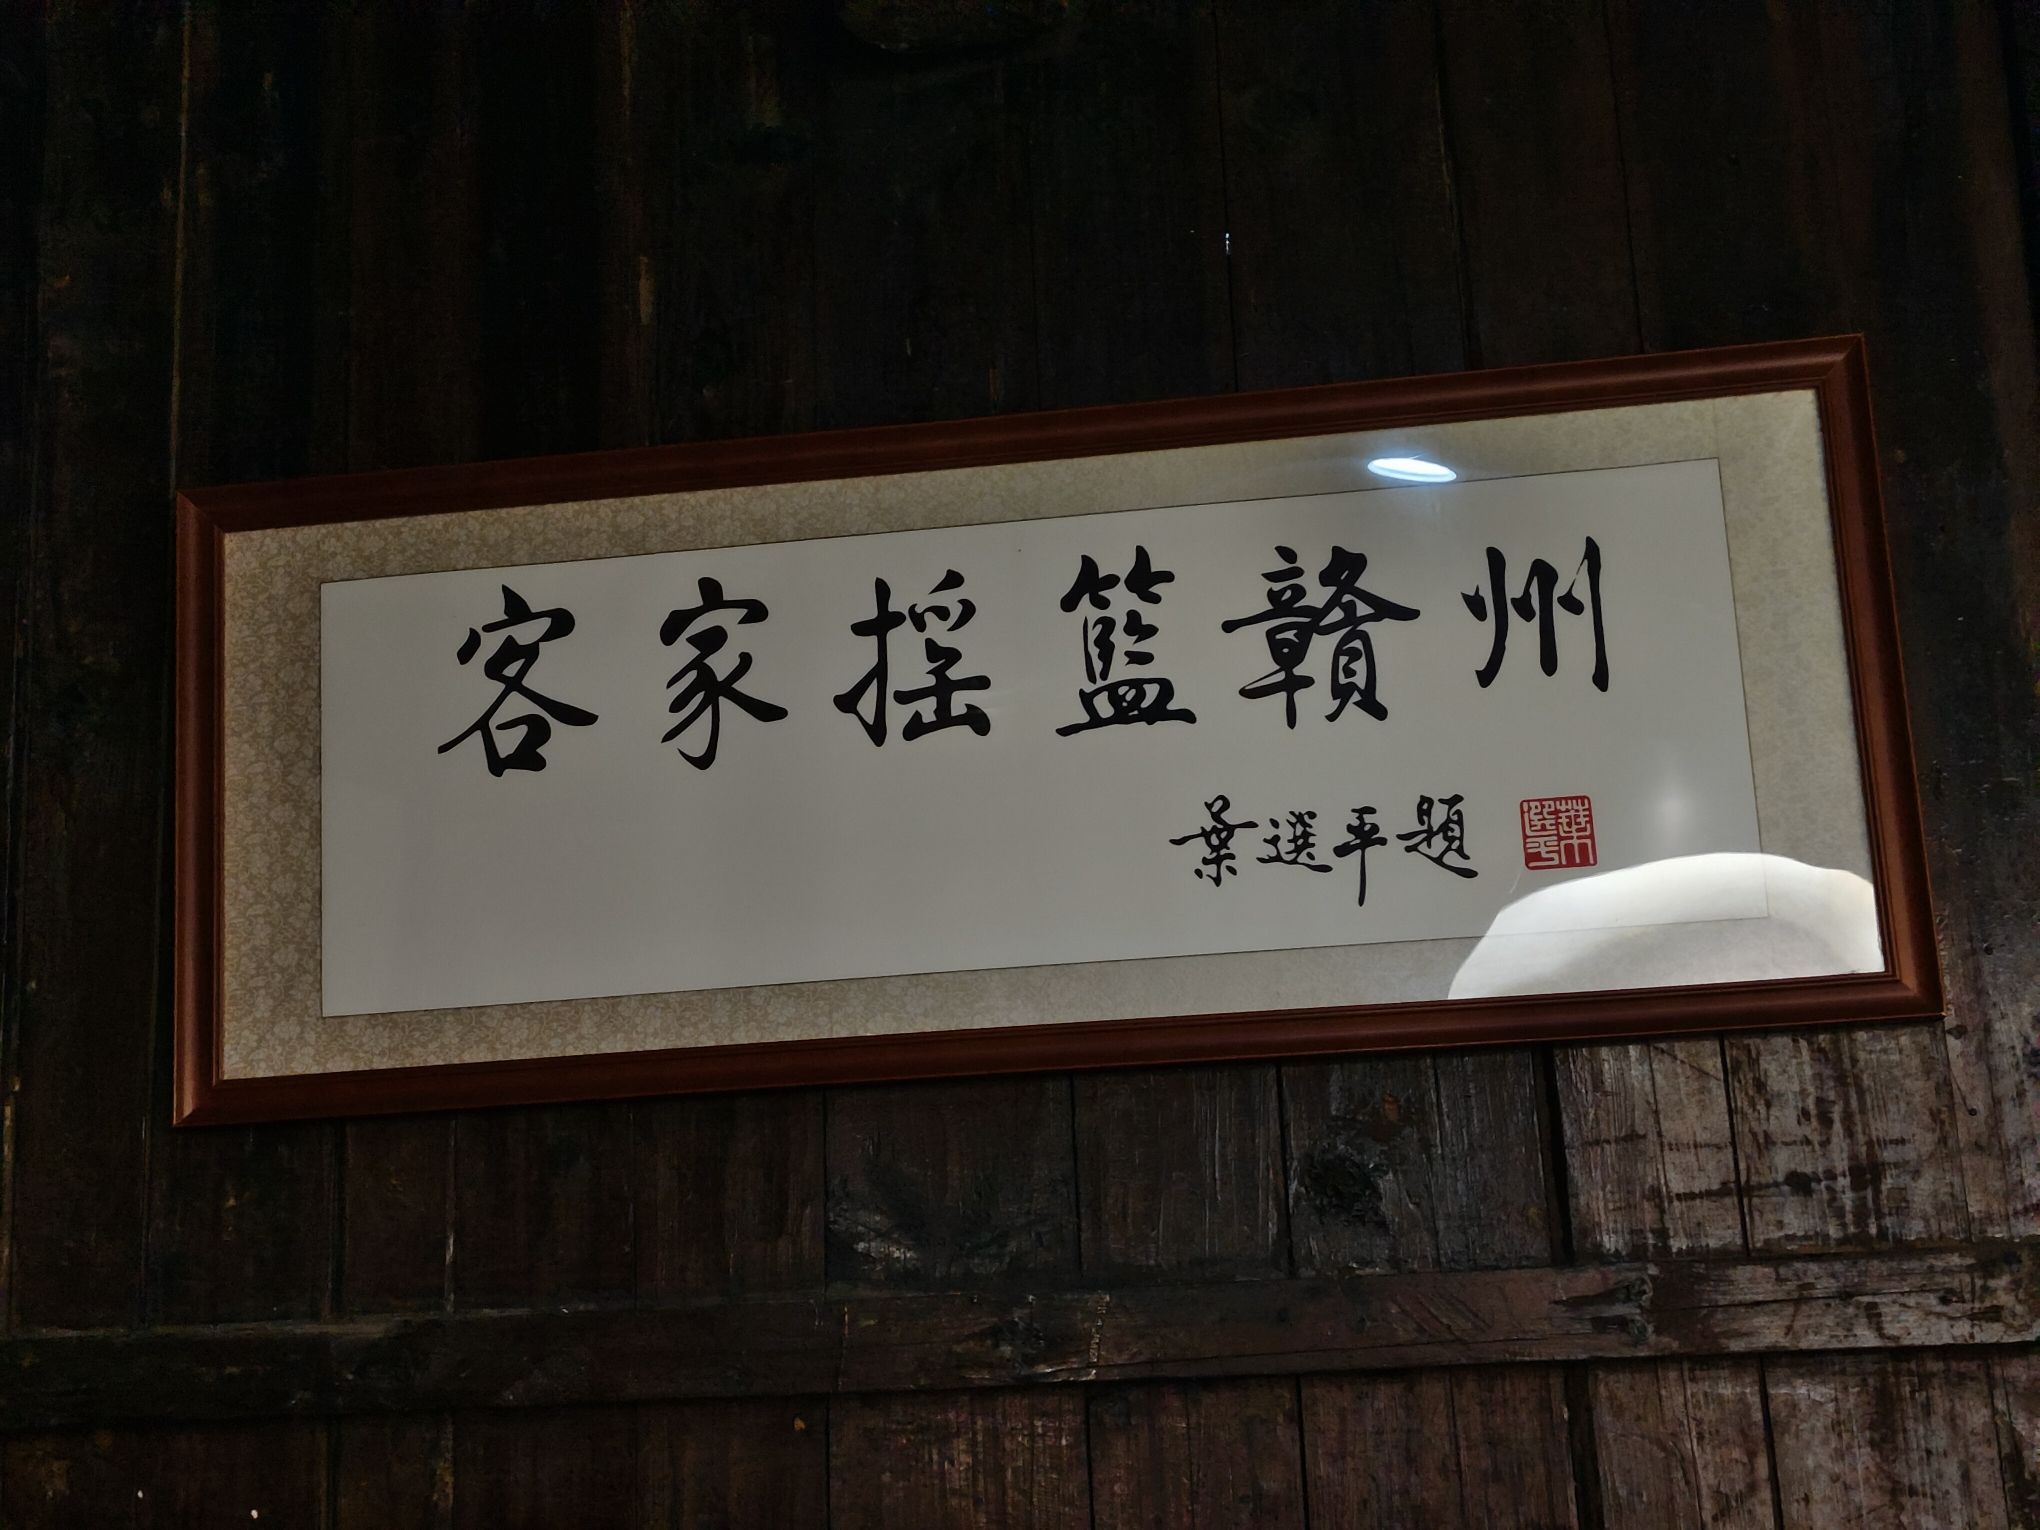 客家摇籃贛州
葉選平題
葉選平